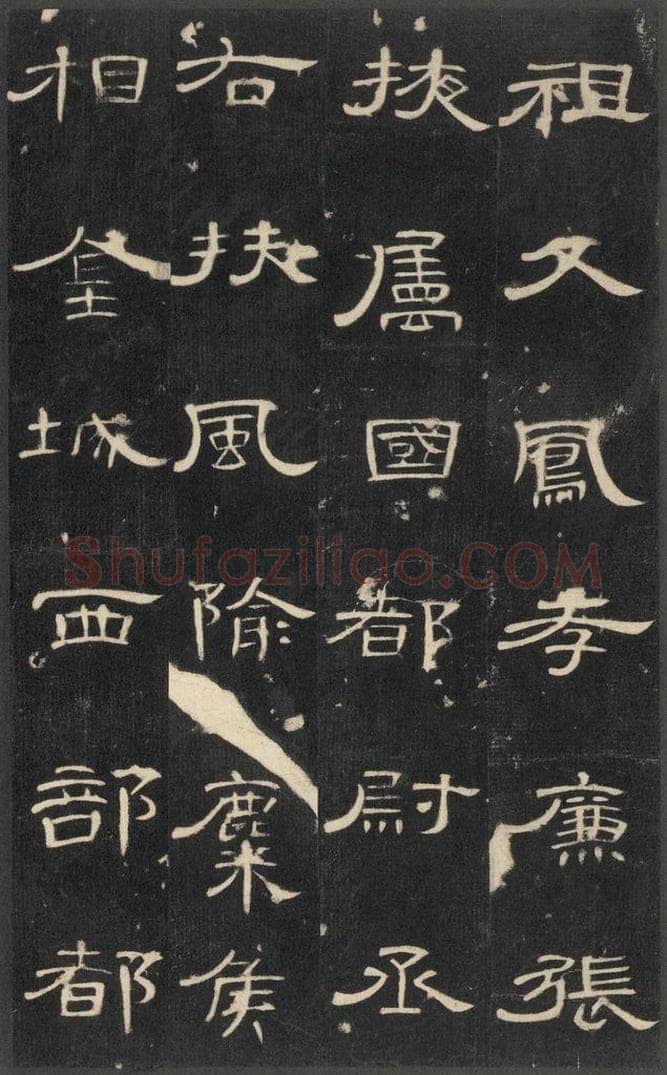 祖父鳳孝廉張
掖屬國都尉丞
右扶風隃麋侯
相金城西部都
Shufaziliao.COM